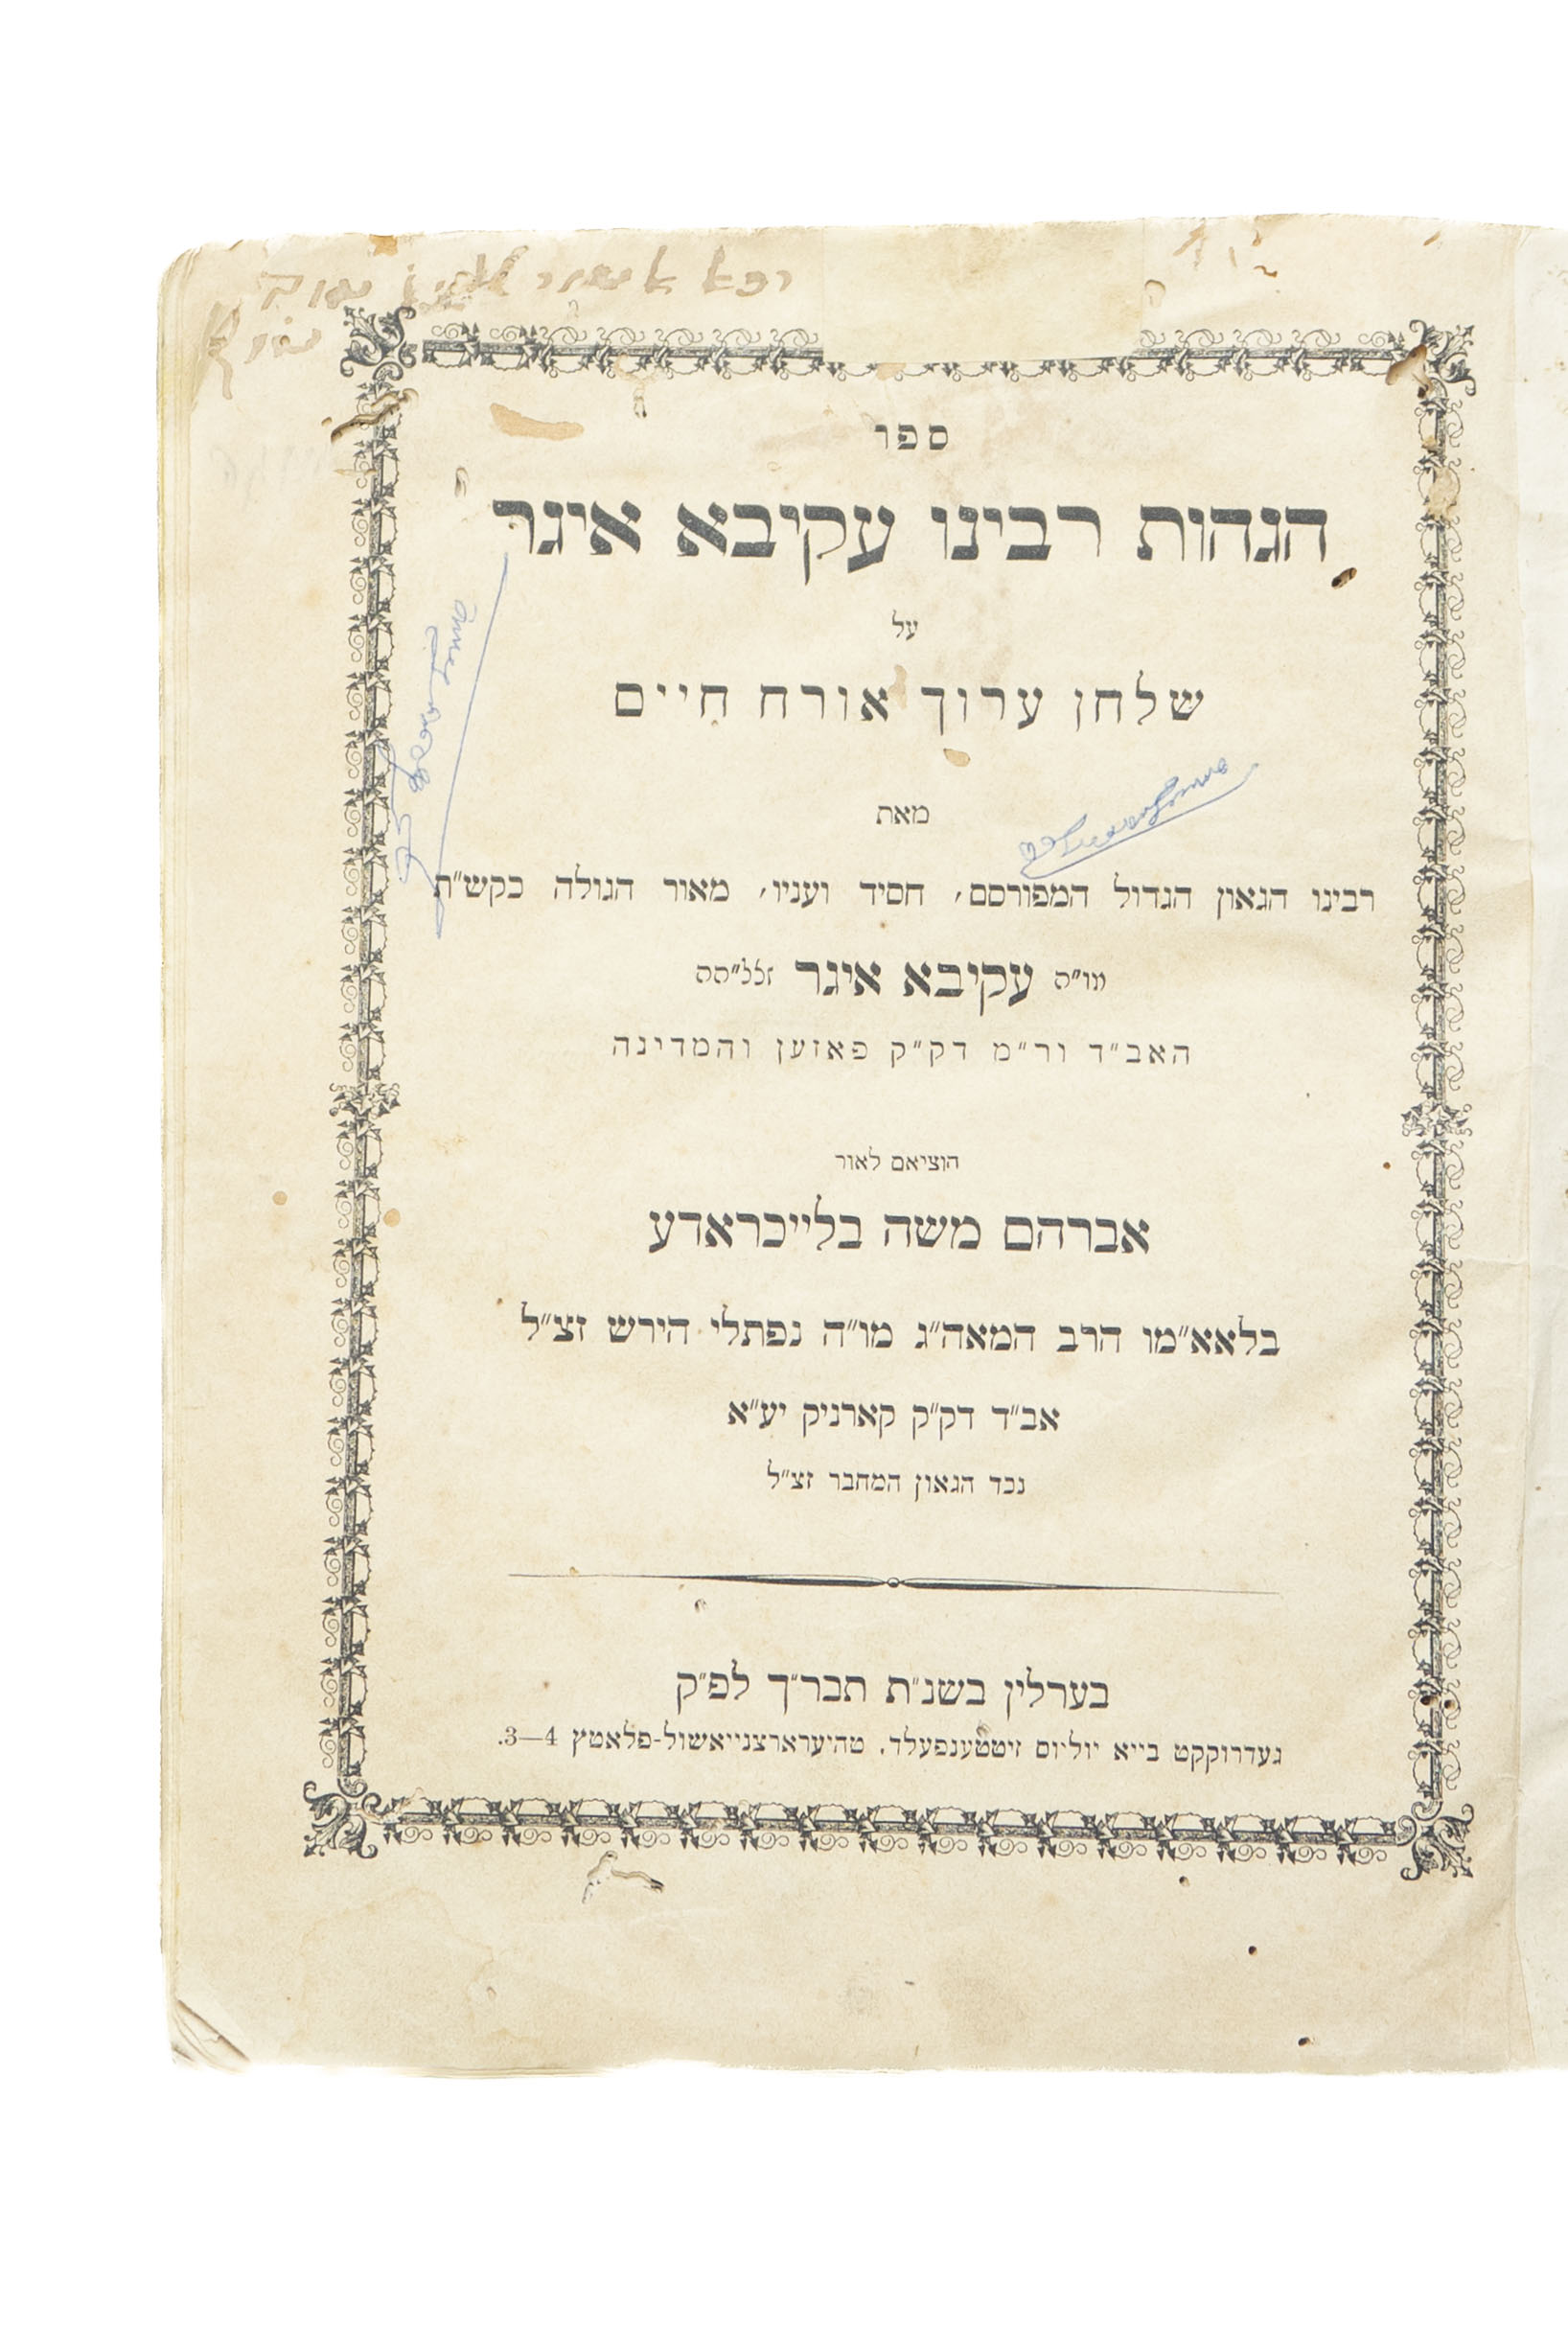 ספר
הגהות רבינו עקיבא איגר
על
שלחן ערוך אורח חיים
מאת
רבינו הגאון הגדול המפורסם, חסיד ועניו, מאור הגולה כקש״ת
מו״ה עקיבא איגר זללה״ה
האב״ד ור״מ דק״ק פאזען והמדינה
הוציאם לאור
אברהם משה בלייכראדע
בלאא״מו הרב המאה״ג מו״ה נפתלי הירש זצ״ל
אב״ד דק״ק קארניק יע״א
נכד הגאון המחבר זצ״ל
בערלין בשנ״ת תבר״ך לפ״ק
געדרוקקט בייא יוליוס זיטטענפעלד, טהיערארצנייאשול-פלאטץ 4—3.